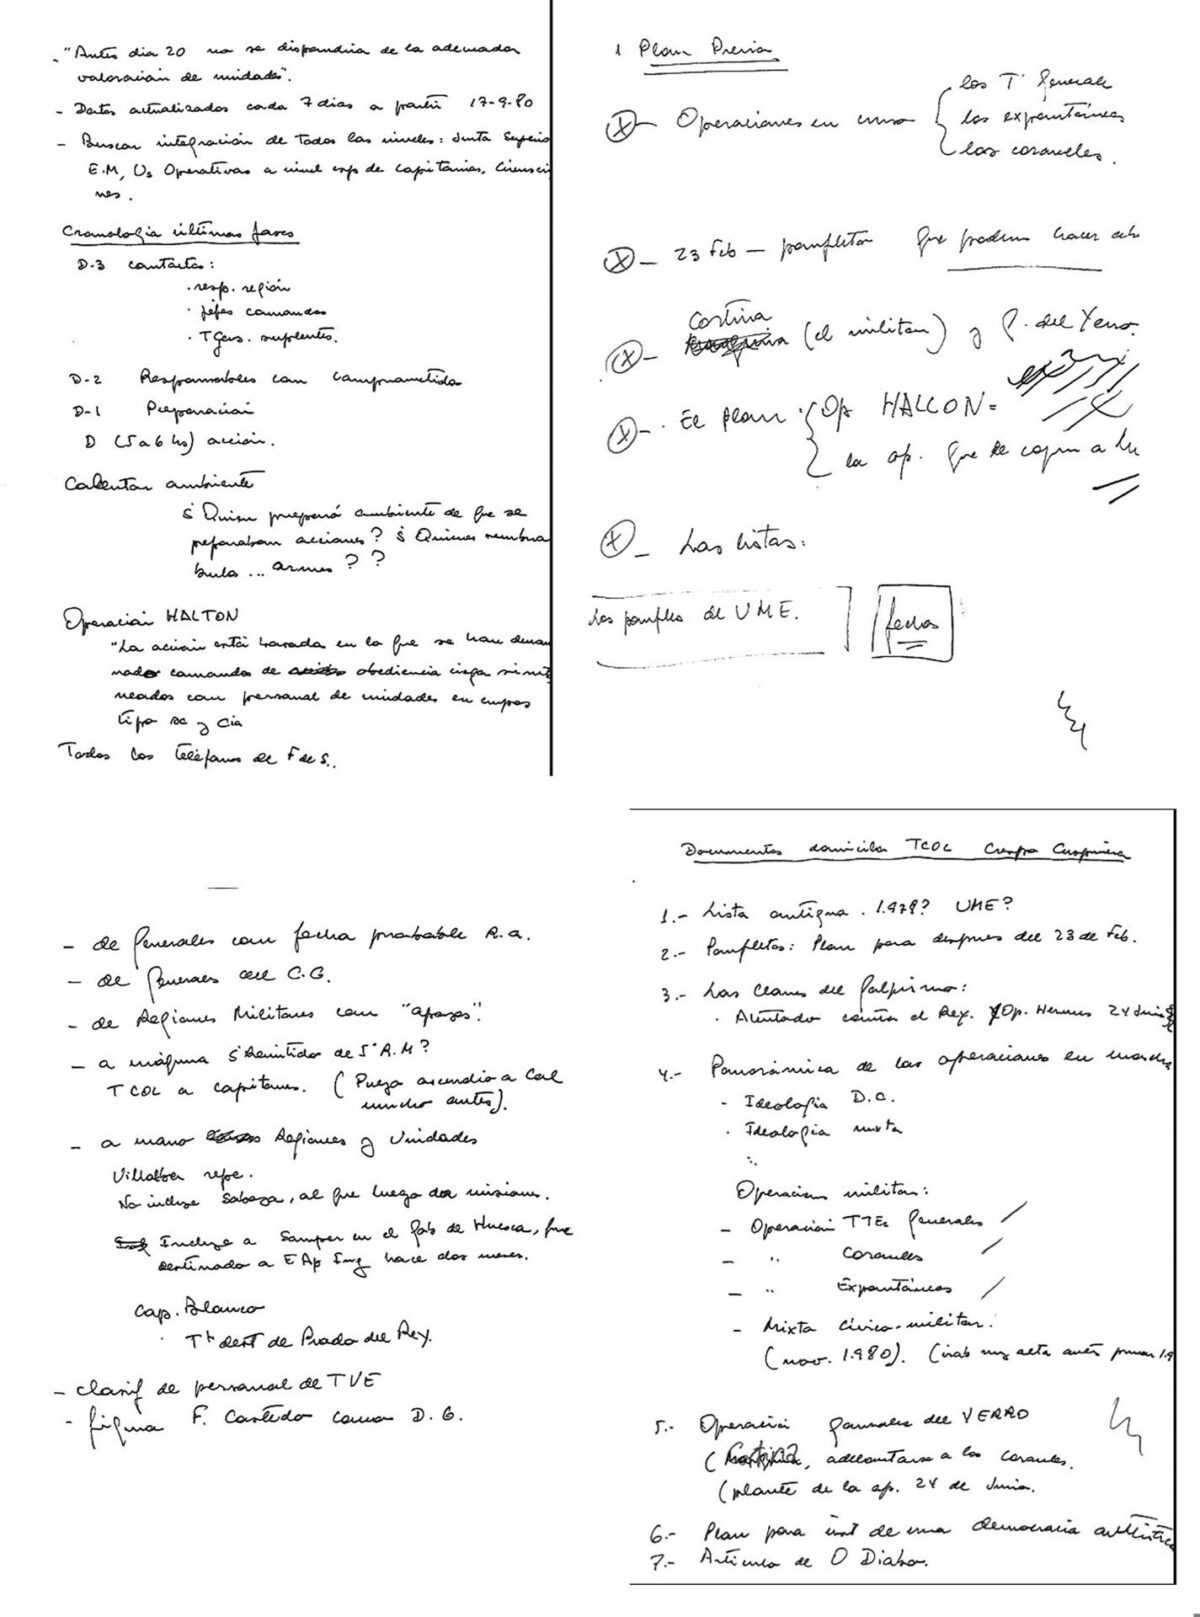 - "Antes dia 20 no se dispondria de la adecuada
valoración de unidades".
- Datos actualizados cada 7 dias a partir 17-9-80
- Buscar integración de Todos los niveles: Junta Superio
E.M, Us Operativas a nivel de capitanias,
nes.
Cronología últimas fases
D-3 contactos:
· resp. región
· jefes comandos
· TGens. suplentes.
D-2 Responsables con comprometidos
D-1 Preparación
D (5 a 6 hs) acción.
Calentar ambiente
¿Quien preparó ambiente de que se
preparaban acciones? ¿Quienes
bulo... armas? ?
Operación HALTON
"La acción está basada en lo que se han denomi
nado comandos de obediencia ciega
neados con personal de unidades en cuerpos
tipo se y cia
Todos los teléfonos de F de S.
1 Plan Previo
X - Operaciones en curso
los T. Generale
los espontáneos
los coroneles.
X - 23 Feb - panfleto que podemos hacer
Cortina
X - (el militar) y P. del Yerro.
X - · El plan · Op HALCON =
la op. que se cogen a
X - Las listas:
Los panfletos de UME.
fechas
- de Generales con fecha probable R.a.
- de Generales del C.G.
- de Regiones Militares con "apoyos".
- a máquina ¿Remitido de 5ª R.M?
TCOL a capitanes. (Puga ascendio a Col
mucho antes).
- a mano Regiones y Unidades
Villalba repe.
No incluye Sabaza, al que luego da misiones.
Incluye a Samper en el Gob de Huesca, fue
destinado a E Ap Ing hace dos meses.
Cap. Blanco
· Tb dest de Prado del Rey.
- clasif de personal de TVE
- figura F. Castedo como D. G.
Documentos domicilio TCOL Crespo Cuspinera
1.- Lista antigua. 1.978? UME?
2.- Panfletos: Plan para despues del 23 de Feb.
3.- Las claves del Golpismo:
· Atentado contra el Rey. Op. 24 Junio
4.- Panorámica de las operaciones en marcha
- Ideología D.C.
- Ideología mixta
Operacion militar:
- Operación TTEs Generales /
- " Coroneles /
- " Espontáneos /
- Mixta cívico-militar.
(nov. 1.980). (
5.- Operación generales del YERRO
(Cortina, adelantarse a los coroneles.
(plante de la op. 24 de Junio.
6.- Plan para inst de una democracia auténtica
7.- Artículo de O Diabo.